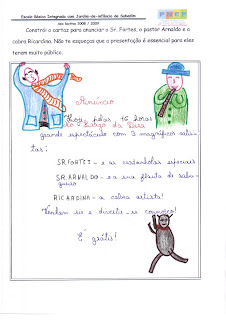 Escola Básica Integrada com Jardim-de-Infância de Sobradim
Ano lectivo 2008 / 2009
PNEP
Constrói o cartaz para anunciar o Sr. Fortes, o pastor Arnaldo e a
cabra Ricardina. Não te esqueças que a presentação é essencial para eles
terem muito público.
Anúncio
Hoje, pelas 16 horas
no Largo da Vila
grande espectáculo com 3 magníficos artis-
tas:
SR. FORTES - e as castanholas especiais
SR. ARNALDO - e a sua flauta de sabu-
gueiro
RICARDINA - a cabra artista!
Venham rir e divertir-se connosco!
É grátis!